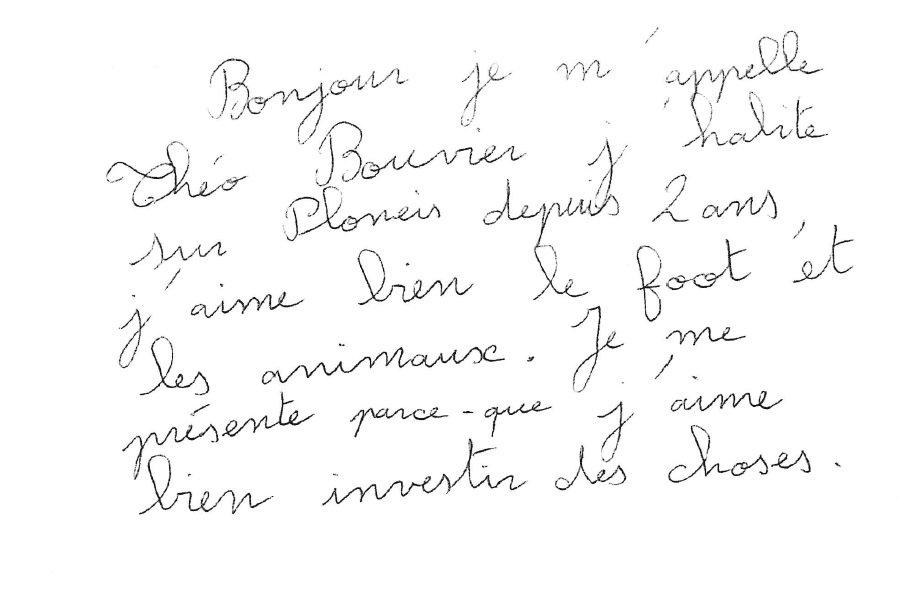 Bonjour je m'appelle
Théo Bouvier j'habite
sur Ploneis depuis 2 ans,
j'aime bien le foot et
les animaux. Je me
présente parce-que j'aime
bien investir des choses.